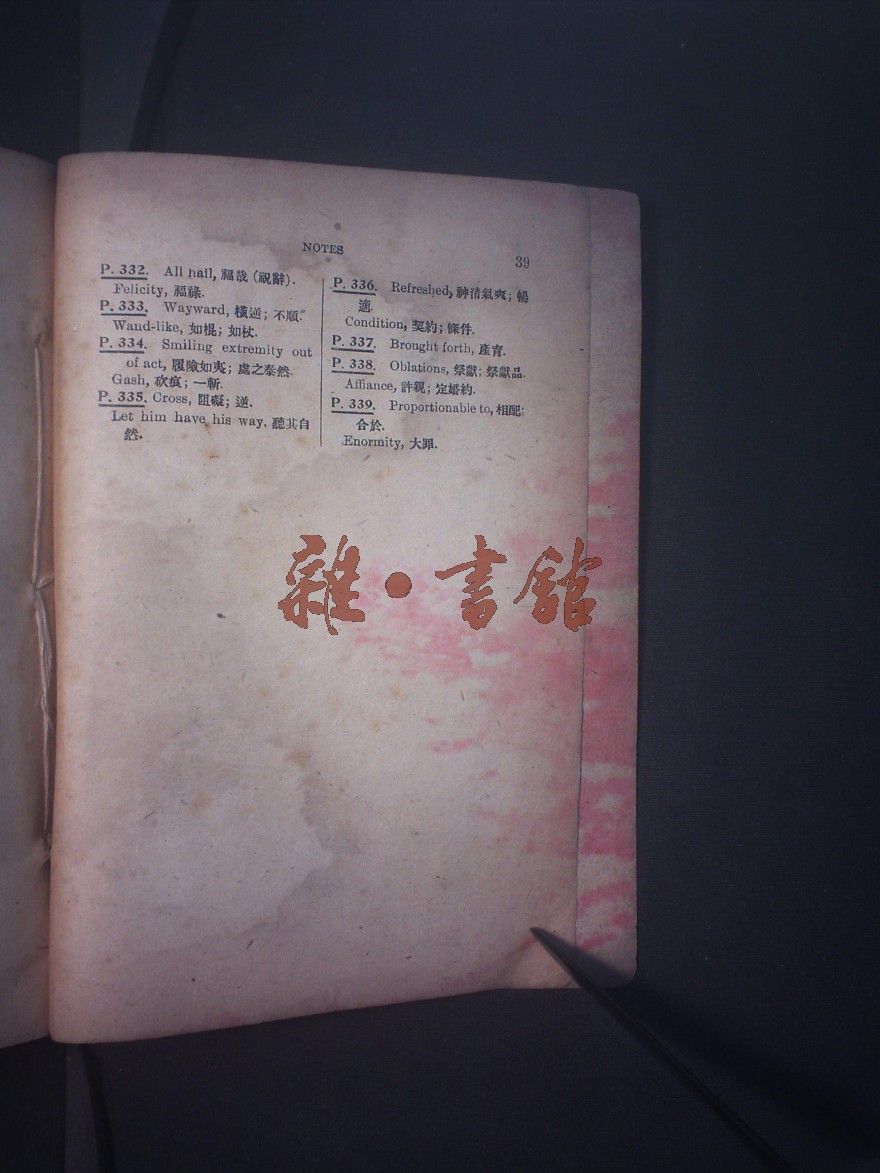 NOTES
39
P. 332. All hail, 福哉 (祝辭).
Felicity, 福祿.
P. 333. Wayward, 橫逆; 不順.
Wand-like, 如棍; 如杖.
P. 334. Smiling extremity out
of act, 履險如夷; 處之泰然.
Gash, 砍痕; 一斬.
P. 335. Cross, 阻礙; 逆.
Let him have his way, 聽其自
然.
P. 336. Refreshed, 神清氣爽; 暢
適.
Condition, 契約; 條件.
P. 337. Brought forth, 產育.
P. 338. Oblations, 祭獻; 祭獻品.
Affiance, 許親; 定婚約.
P. 339. Proportionable to, 相配;
合於.
Enormity, 大罪.
雜·書館